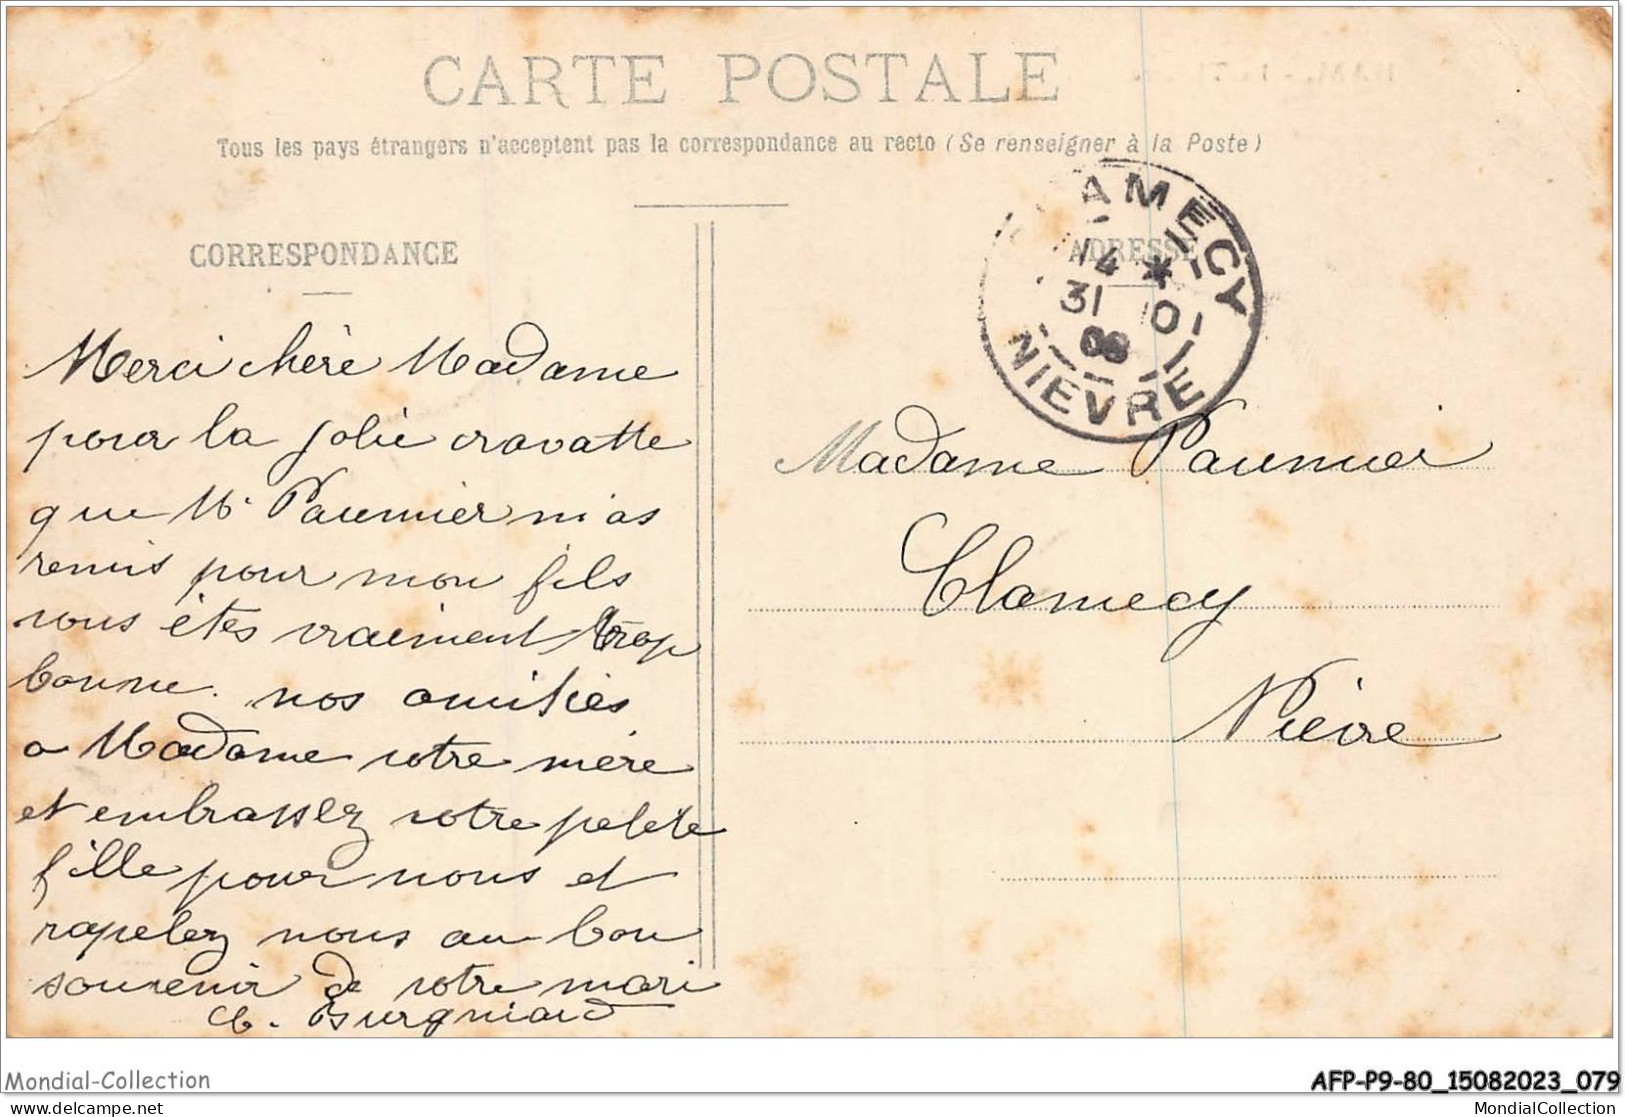 CARTE POSTALE
Tous les pays étrangers n'acceptent pas la correspondance au recto (Se renseigner à la Poste)
CORRESPONDANCE
ADRESSE
AMECY
14 *
31 10
08
NIEVRE
Merci chère Madame
pour la jolie cravatte
que Mr Paumier m'as
remis pour mon fils
vous êtes vraiment trop
bonne. nos amitiés
a Madame votre mère
et embrassez votre petite
fille pour nous et
rapelez nous au bon
souvenir de votre mari
Burgniard
Madame Paumier
Clamecy
Nièvre
Mondial-Collection
AFP-P9-80_15082023_079
delcampe.net
MondialCollection